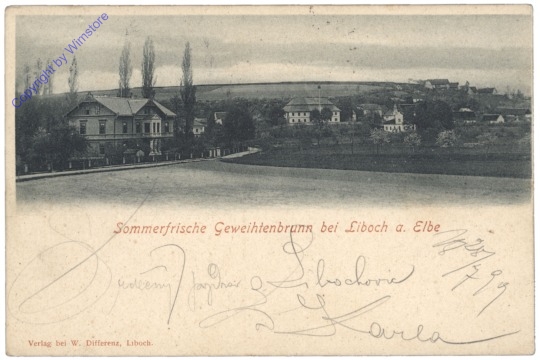 Copyright by Wimstore
Sommerfrische Geweihtenbrunn bei Liboch a. Elbe
28/7 99
Srdečný pozdrav z Libochovic
Karla
Verlag bei W. Differenz, Liboch.